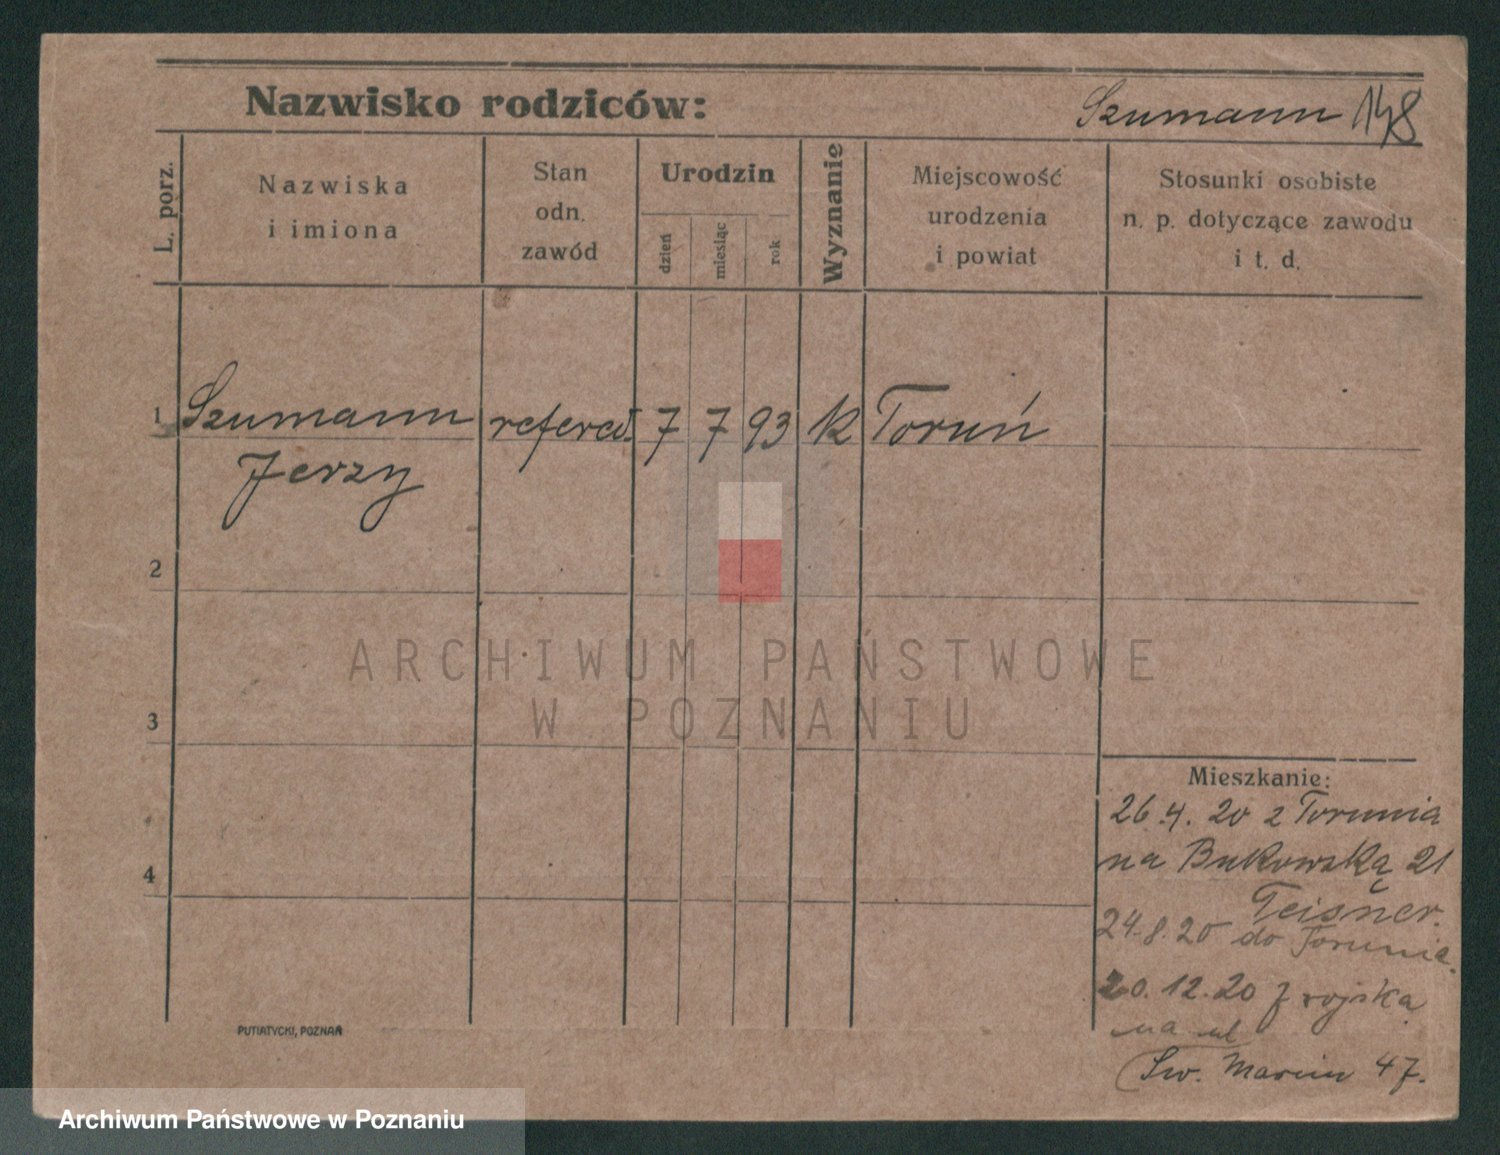 Nazwisko rodziców: Szumann 148
L. porz.
Nazwiska
i imiona
Stan
odn.
zawód
Urodzin
dzień
miesiąc
rok
Wyznanie
Miejscowość
urodzenia
i powiat
Stosunki osobiste
n. p. dotyczące zawodu
i t. d.
1 Szumann refered. 7 7 93 k Toruń
Jerzy
2
3
4
ARCHIWUM PAŃSTWOWE
W POZNANIU
Mieszkanie:
26.4.20 z Torunia
na Bukowską 21
Teisner.
24.8.20 do Torunia.
20.12.20 z wojska
na ul
Św. Marcin 47.
PUTIATYCKI, POZNAŃ
Archiwum Państwowe w Poznaniu